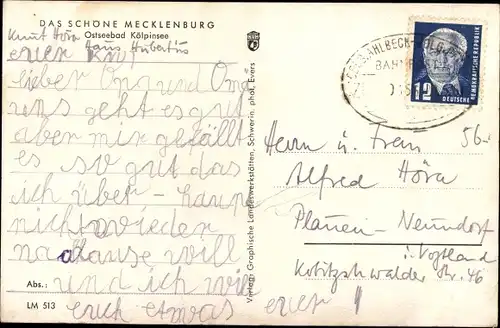 DAS SCHÖNE MECKLENBURG
Ostseebad Kölpinsee
Knut Höra
Hans Hubertus
euer Knut
lieber Oma und Opa
uns geht es gut
aber mir gefällt
es so gut das
ich über-haupt
nicht wieder
nachause will
und ich will
euch etwas
euer
Abs.:
LM 513
Verlag: Graphische Landeswerkstätten, Schwerin, phot. Evers
BAHNPOST
12
DEUTSCHE
DEMOKRATISCHE REPUBLIK
Herrn u. Frau
Alfred Höra
Plauen-Neundorf
i. Vogtland
Kobitzschwalder Str. 46
56-